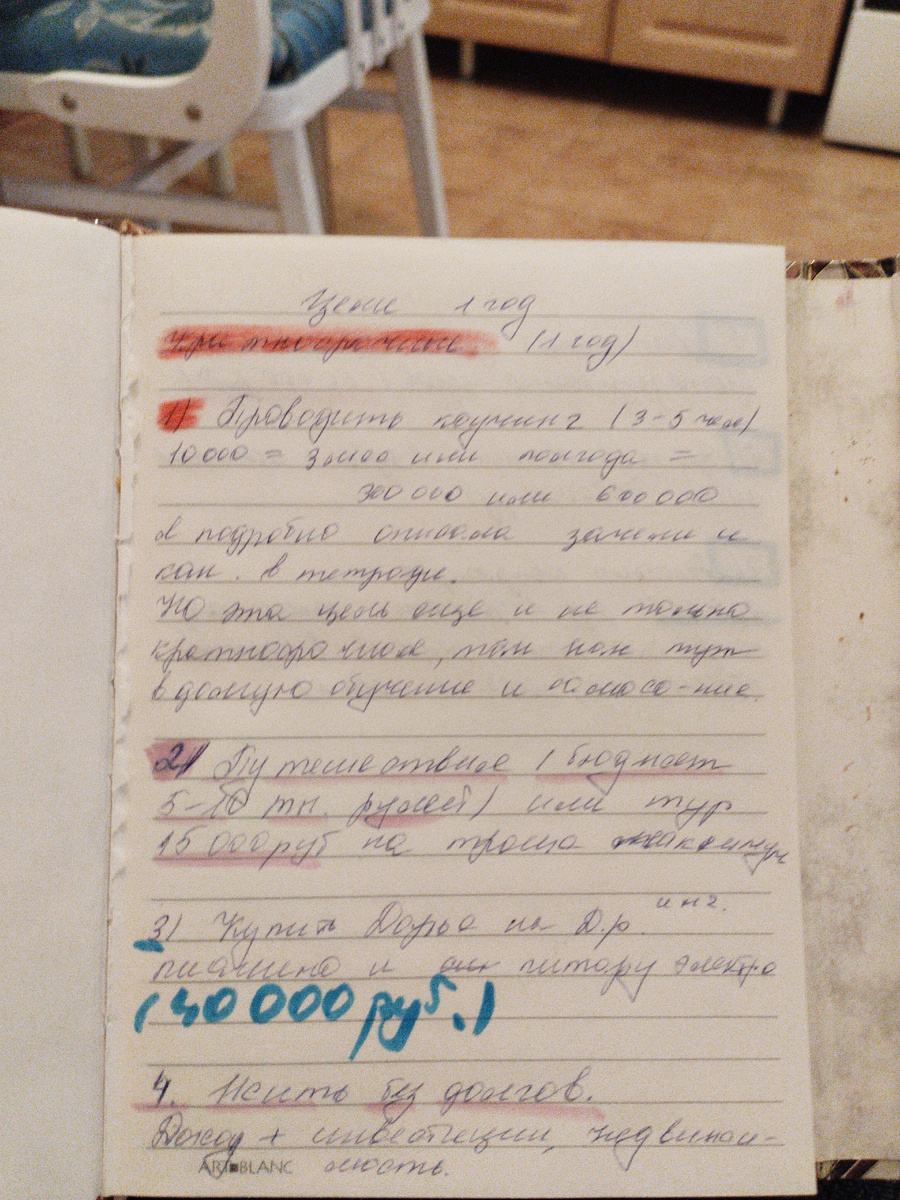 Цели 1 год
краткосрочные (1 год)
1) Проводить коучинг (3-5 чел)
10000 = или полгода =
300000 или 600000
Я подробно описала зачем и
как. в тетради.
Но эта цель еще и не только
краткосрочная, так как тут
вдолгую обучение и
2) Путешествие (бюджет
5-10 т. рублей) или тур
15 000 руб на троих максимум
3) Купить Дарье на Д.р. инг.
пианино и гитару электро
(40 000 руб.)
4. Жить без долгов.
Доход + инвестиции, недвижи-
мость.
ART BLANC